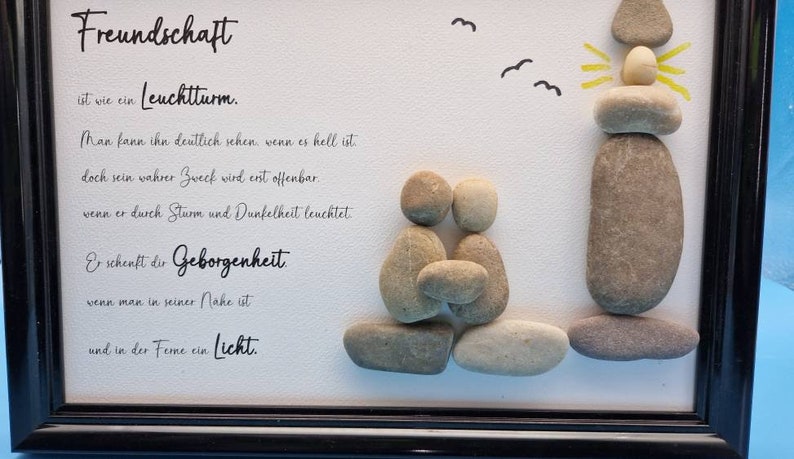 Freundschaft
ist wie ein Leuchtturm.
Man kann ihn deutlich sehen, wenn es hell ist,
doch sein wahrer Zweck wird erst offenbar,
wenn er durch Sturm und Dunkelheit leuchtet.
Er schenkt dir Geborgenheit,
wenn man in seiner Nähe ist
und in der Ferne ein Licht.